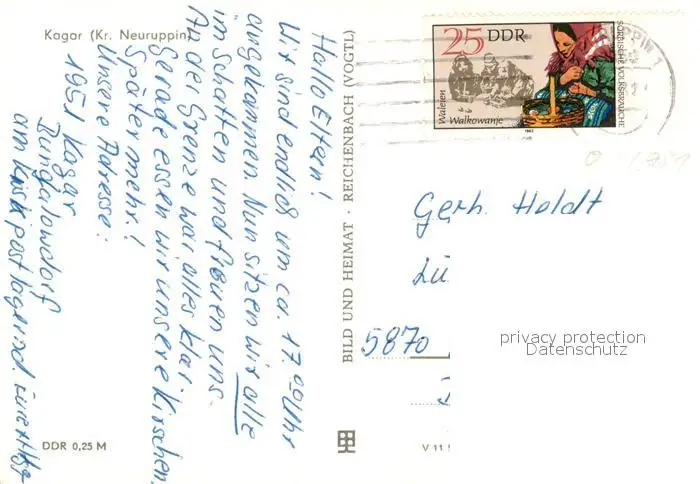 Kagar (Kr. Neuruppin)
Hallo Eltern!
Wir sind endlich um ca. 17.00 Uhr
angekommen. Nun sitzen wir alle
im Schatten und freuen uns.
An der Grenze war alles klar.
Gerade essen wir unsere Kirschen.
Später mehr!
Unsere Adresse:
1951 Kagar
Bungalowdorf
am Kiosk postlagernd.
DDR 0,25 M
BILD UND HEIMAT · REICHENBACH (VOGTL)
V 11
25 DDR
SORBISCHE VOLKSBRÄUCHE
Waleien
Walkowanje
1982
Gerh. Holdt
5870
privacy protection
Datenschutz